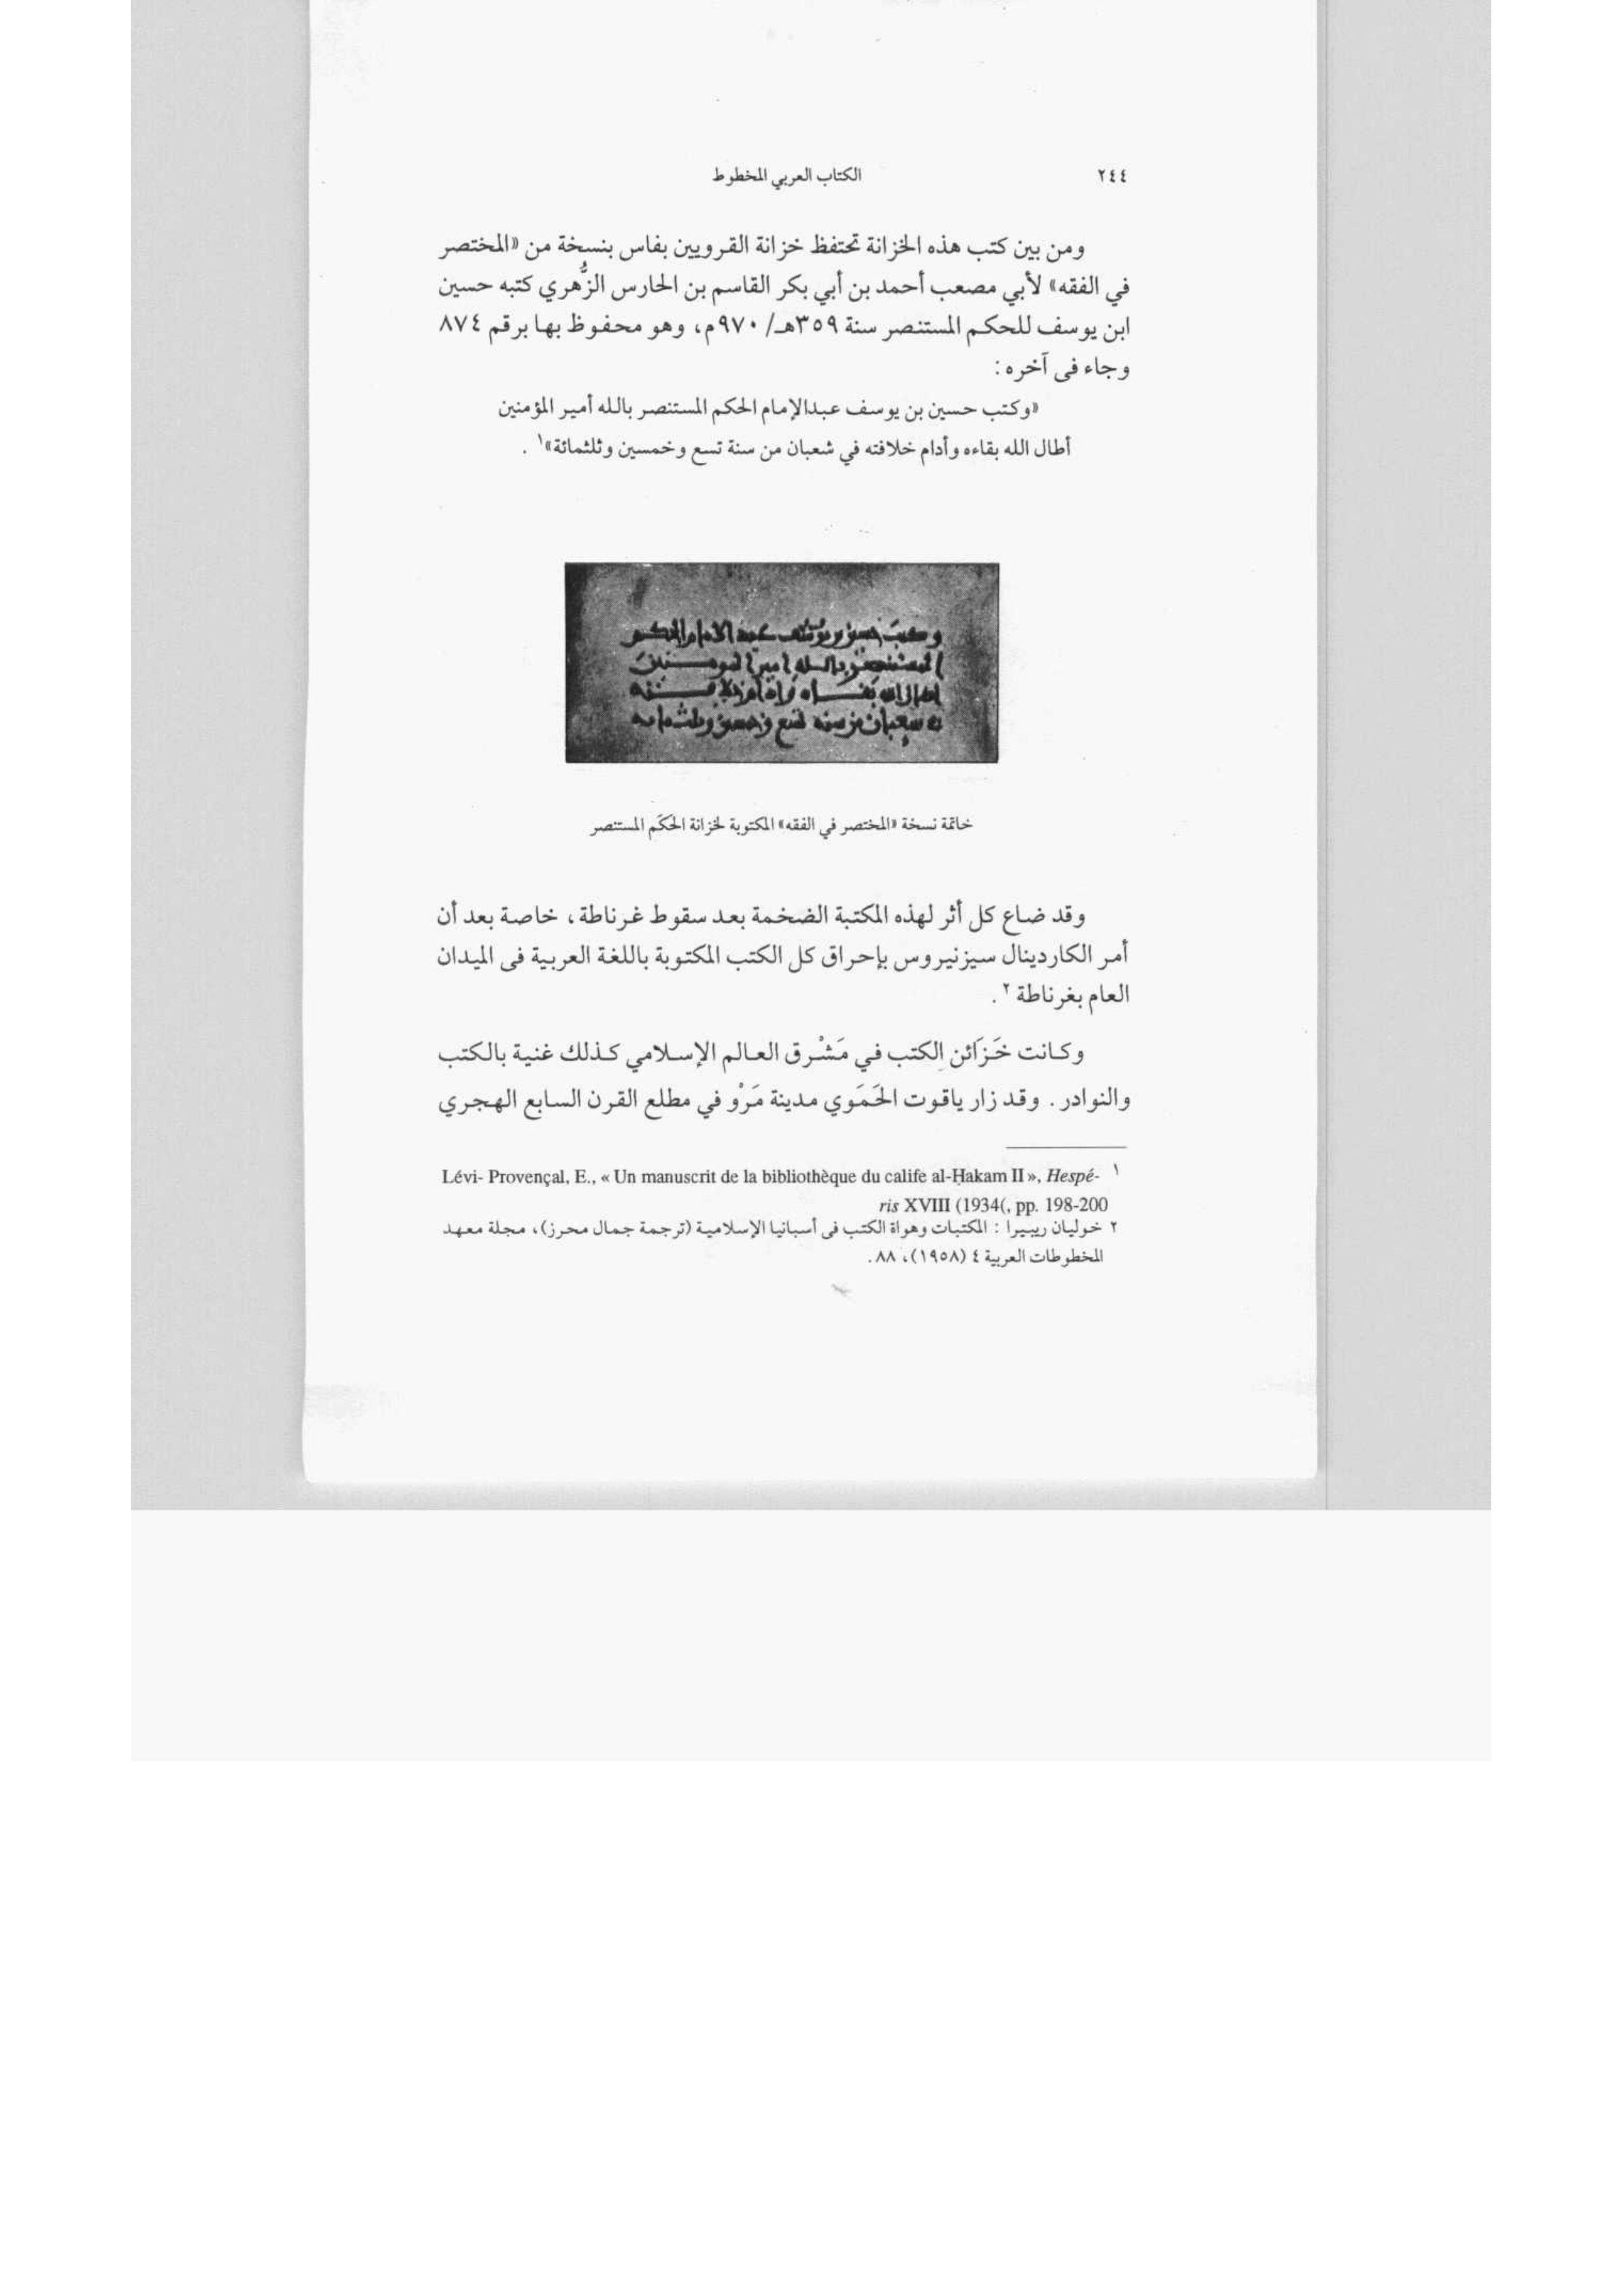 ٢٤٤
الكتاب العربي المخطوط
ومن بين كتب هذه الخزانة تحتفظ خزانة القرويين بفاس بنسخة من «المختصر
في الفقه» لأبي مصعب أحمد بن أبي بكر القاسم بن الحارس الزُّهري كتبه حسين
ابن يوسف للحكم المستنصر سنة ٣٥٩هـ/ ٩٧٠م، وهو محفوظ بها برقم ٨٧٤
وجاء فى آخره :
«وكتب حسين بن يوسف عبدالإمام الحكم المستنصر بالله أمير المؤمنين
أطال الله بقاءه وأدام خلافته في شعبان من سنة تسع وخمسين وثلثمائة»١ .
وكتب حسين بن يوسف عبد الامام الحكم
المستنصر بالله امير المومنين
اطال الله بقاه وادام خلافته
في شعبان من سنه تسع وخمسين وثلثمايه
خاتمة نسخة «المختصر في الفقه» المكتوبة لخزانة الحَكَم المستنصر
وقد ضاع كل أثر لهذه المكتبة الضخمة بعد سقوط غرناطة، خاصة بعد أن
أمر الكاردينال سيزنيروس بإحراق كل الكتب المكتوبة باللغة العربية فى الميدان
العام بغرناطة ٢ .
وكانت خَزَائن الكتب في مَشْرق العالم الإسلامي كذلك غنية بالكتب
والنوادر. وقد زار ياقوت الحَمَوي مدينة مَرْو في مطلع القرن السابع الهجري
١ Lévi- Provençal, E., « Un manuscrit de la bibliothèque du calife al-Ḥakam II », Hespé-
ris XVIII (1934(, pp. 198-200
٢ خوليان ريبيرا : المكتبات وهواة الكتب فى أسبانيا الإسلامية (ترجمة جمال محرز)، مجلة معهد
المخطوطات العربية ٤ (١٩٥٨)، ٨٨ .